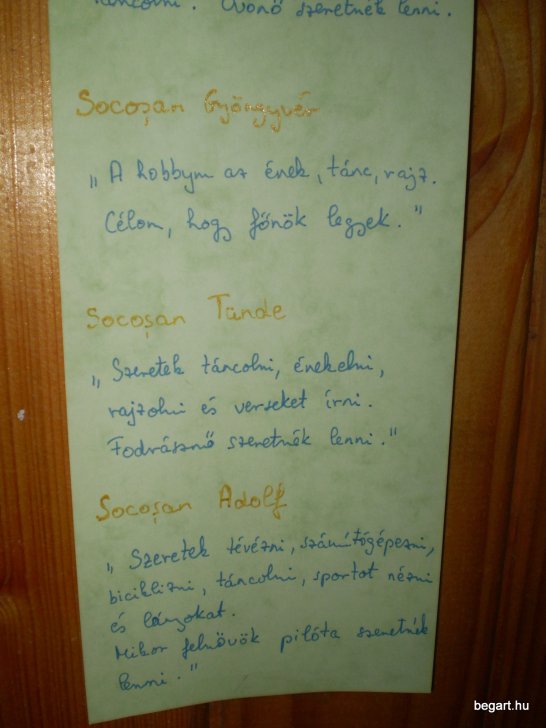 táncolni. Óvonő szeretnék lenni.
Socoșan Gyöngyvér
„A hobbym az ének, tánc, rajz.
Célom, hogy főnök legyek."
Socoșan Tünde
„Szeretek táncolni, énekelni,
rajzolni és verseket írni.
Fodrásznő szeretnék lenni."
Socoșan Adolf
„Szeretek tévézni, számítógépezni,
biciklizni, táncolni, sportot nézni
és lányokat.
Mikor felnövök pilóta szeretnék
lenni."
begart.hu